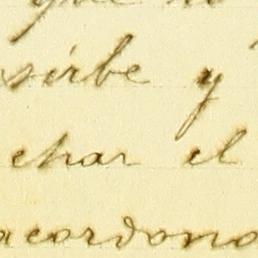 que
sirbe y
char el
acordono